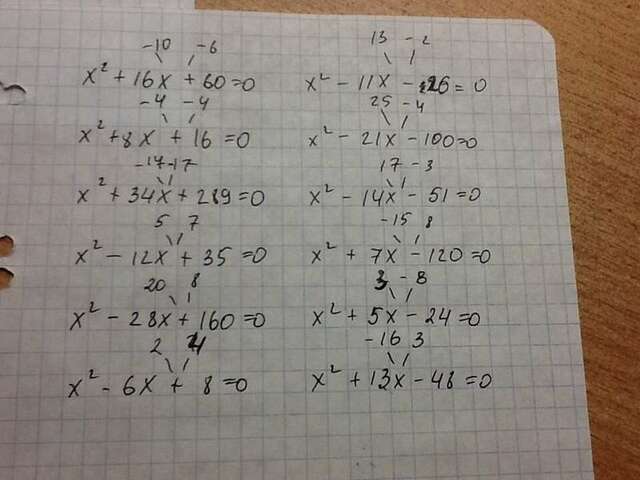 -10 -6
x² + 16x + 60 = 0
-4 -4
x² + 8x + 16 = 0
-17 -17
x² + 34x + 289 = 0
5 7
x² - 12x + 35 = 0
20 8
x² - 28x + 160 = 0
2 4
x² - 6x + 8 = 0
13 -2
x² - 11x - 26 = 0
25 -4
x² - 21x - 100 = 0
17 -3
x² - 14x - 51 = 0
-15 8
x² + 7x - 120 = 0
3 -8
x² + 5x - 24 = 0
-16 3
x² + 13x - 48 = 0